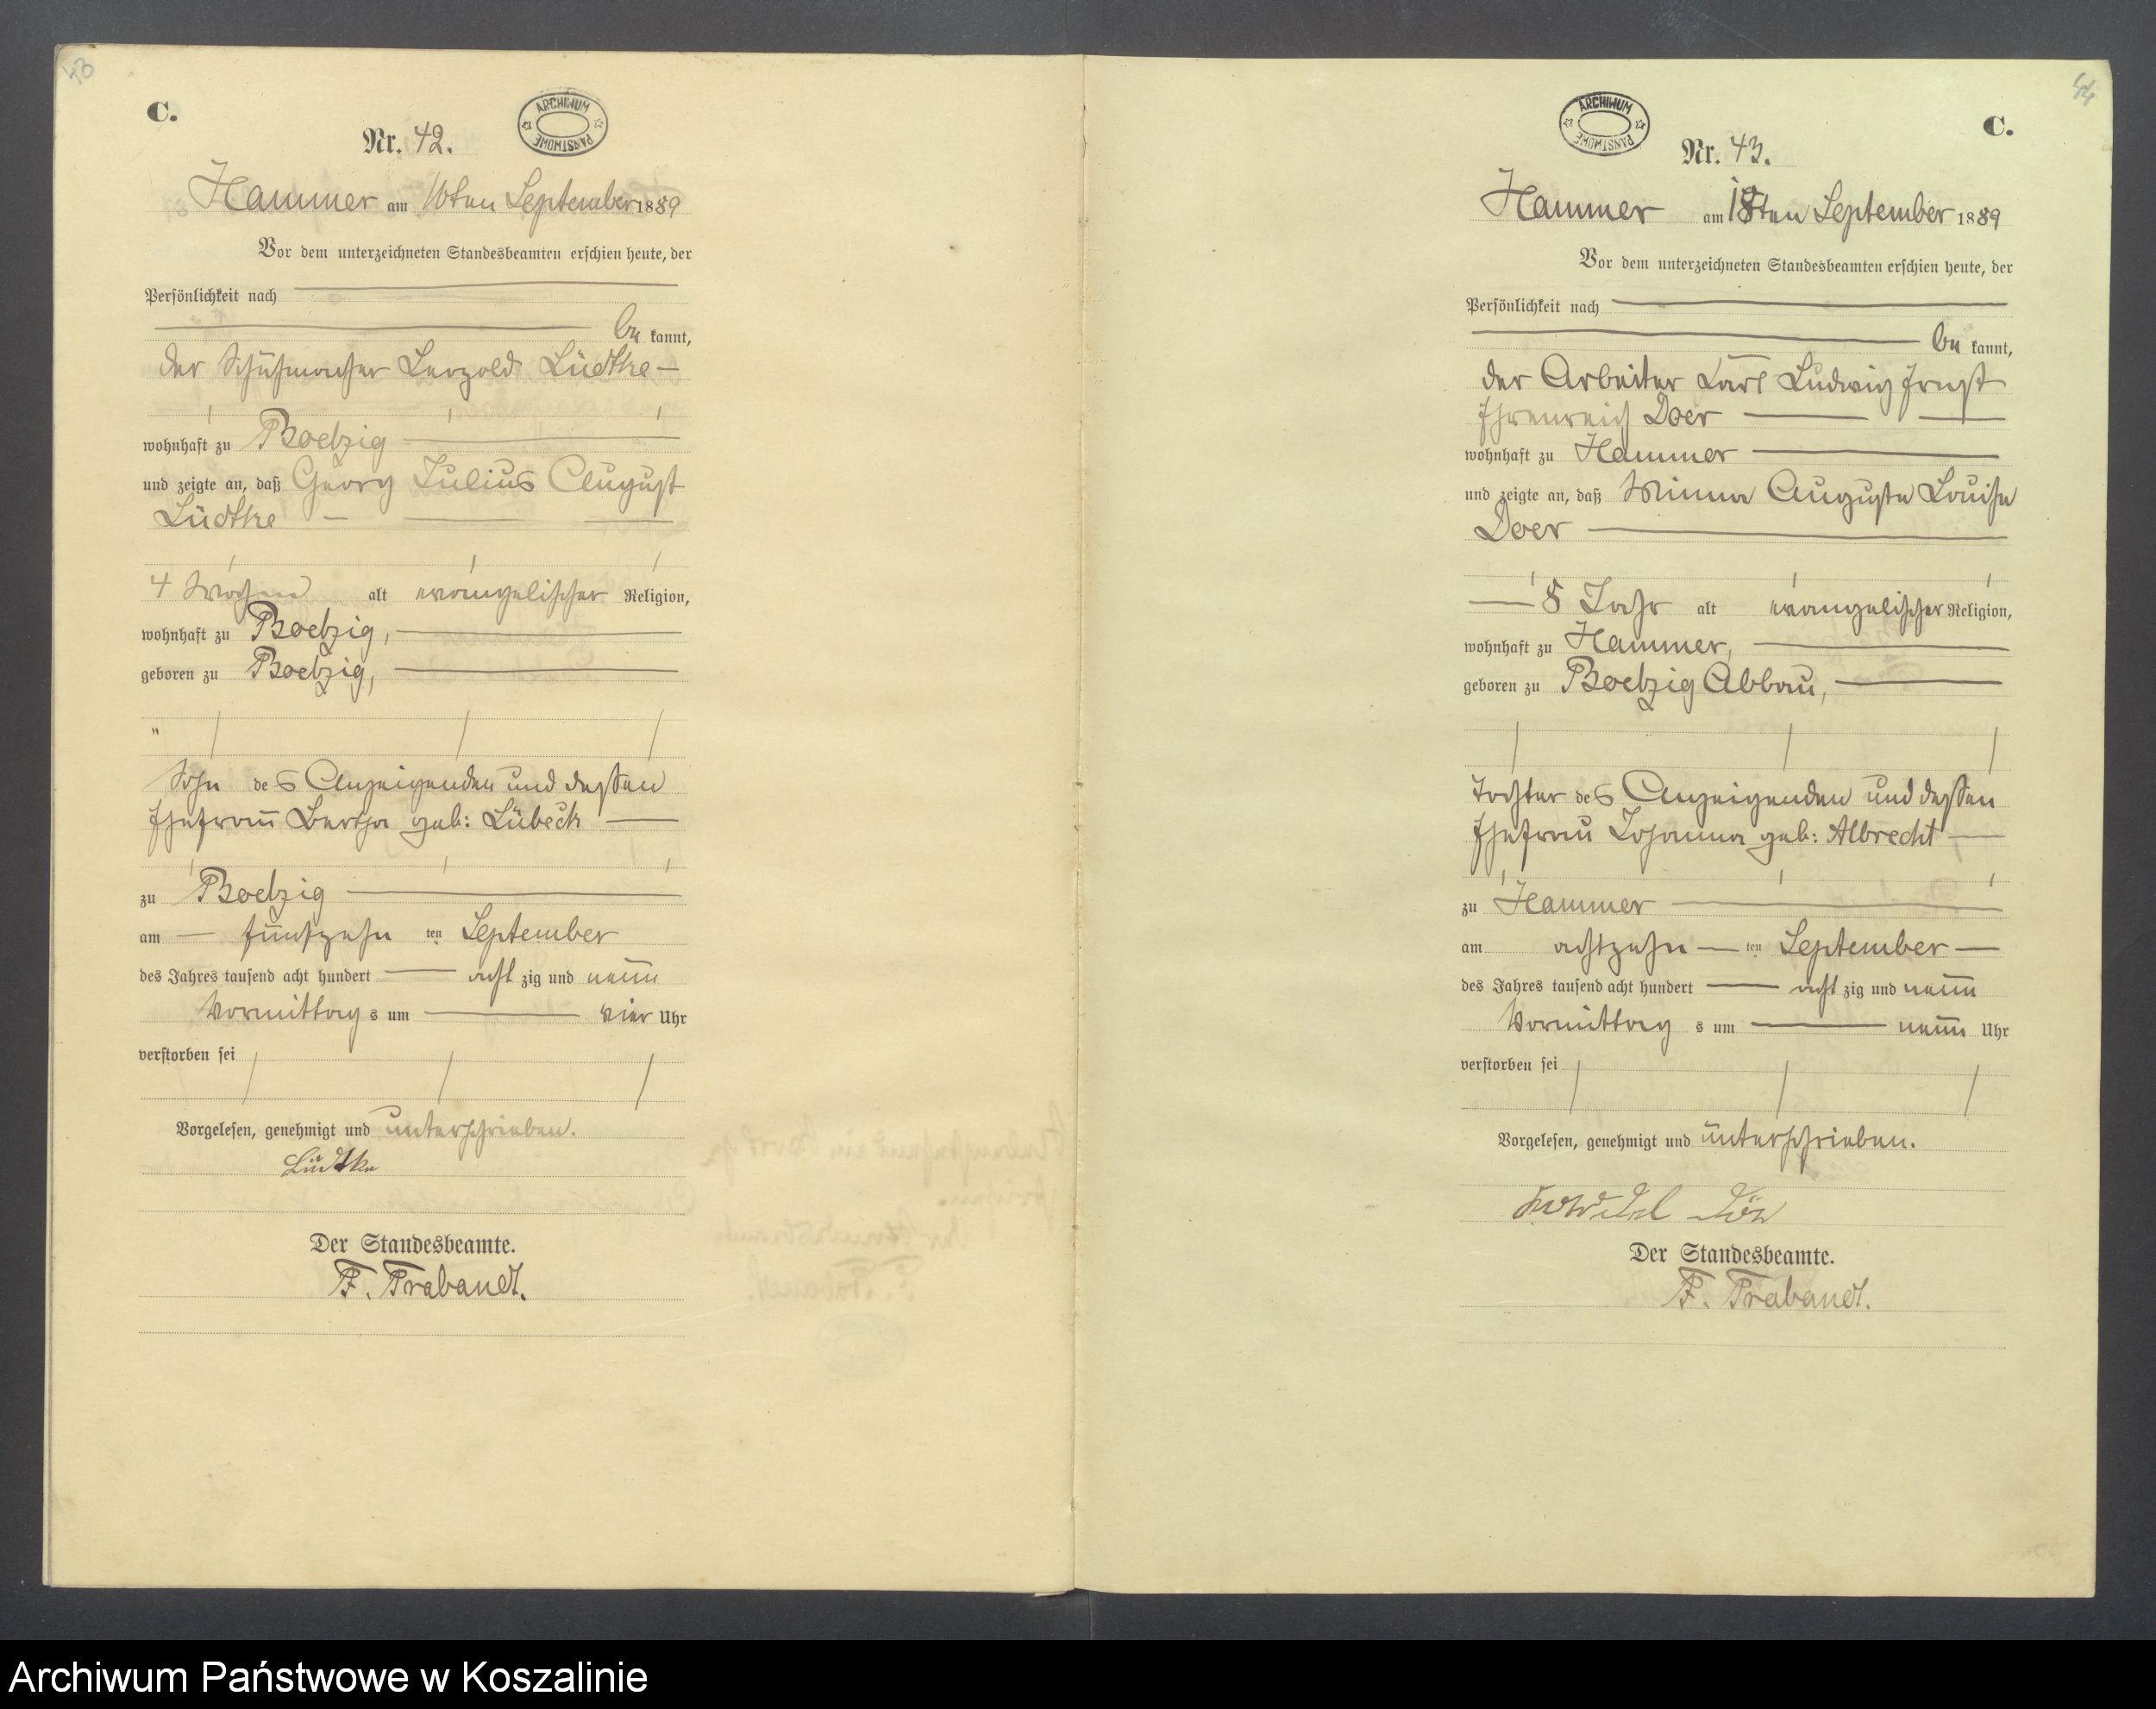 43
C.
ARCHIWUM PAŃSTWOWE
Nr. 42.
Hammer am 16ten September 1889
Vor dem unterzeichneten Standesbeamten erschien heute, der
Persönlichkeit nach
be kannt,
der Schuhmacher Leopold Lüdtke
wohnhaft zu Boetzig
und zeigte an, daß Georg Julius August
Lüdtke
4 Wochen alt evangelischer Religion,
wohnhaft zu Boetzig,
geboren zu Boetzig,
Sohn des Anzeigenden und dessen
Ehefrau Bertha geb: Lübeck
zu Boetzig
am fünfzehn ten September
des Jahres tausend acht hundert acht zig und neun
Vormittag s um vier Uhr
verstorben sei
Vorgelesen, genehmigt und unterschrieben.
Lüdtke
Der Standesbeamte.
F. Trabandt.
44
C.
ARCHIWUM PAŃSTWOWE
Nr. 43.
Hammer am 18ten September 1889
Vor dem unterzeichneten Standesbeamten erschien heute, der
Persönlichkeit nach
be kannt,
der Arbeiter Carl Ludwig Ernst
Ehrenreich Doer
wohnhaft zu Hammer
und zeigte an, daß Minna Auguste Louise
Doer
8 Jahr alt evangelischer Religion,
wohnhaft zu Hammer,
geboren zu Boetzig Abbau,
Tochter des Anzeigenden und dessen
Ehefrau Johanna geb: Albrecht
zu Hammer
am achtzehn ten September
des Jahres tausend acht hundert acht zig und neun
Vormittag s um neun Uhr
verstorben sei
Vorgelesen, genehmigt und unterschrieben.
Der Standesbeamte.
F. Trabandt.
Archiwum Państwowe w Koszalinie